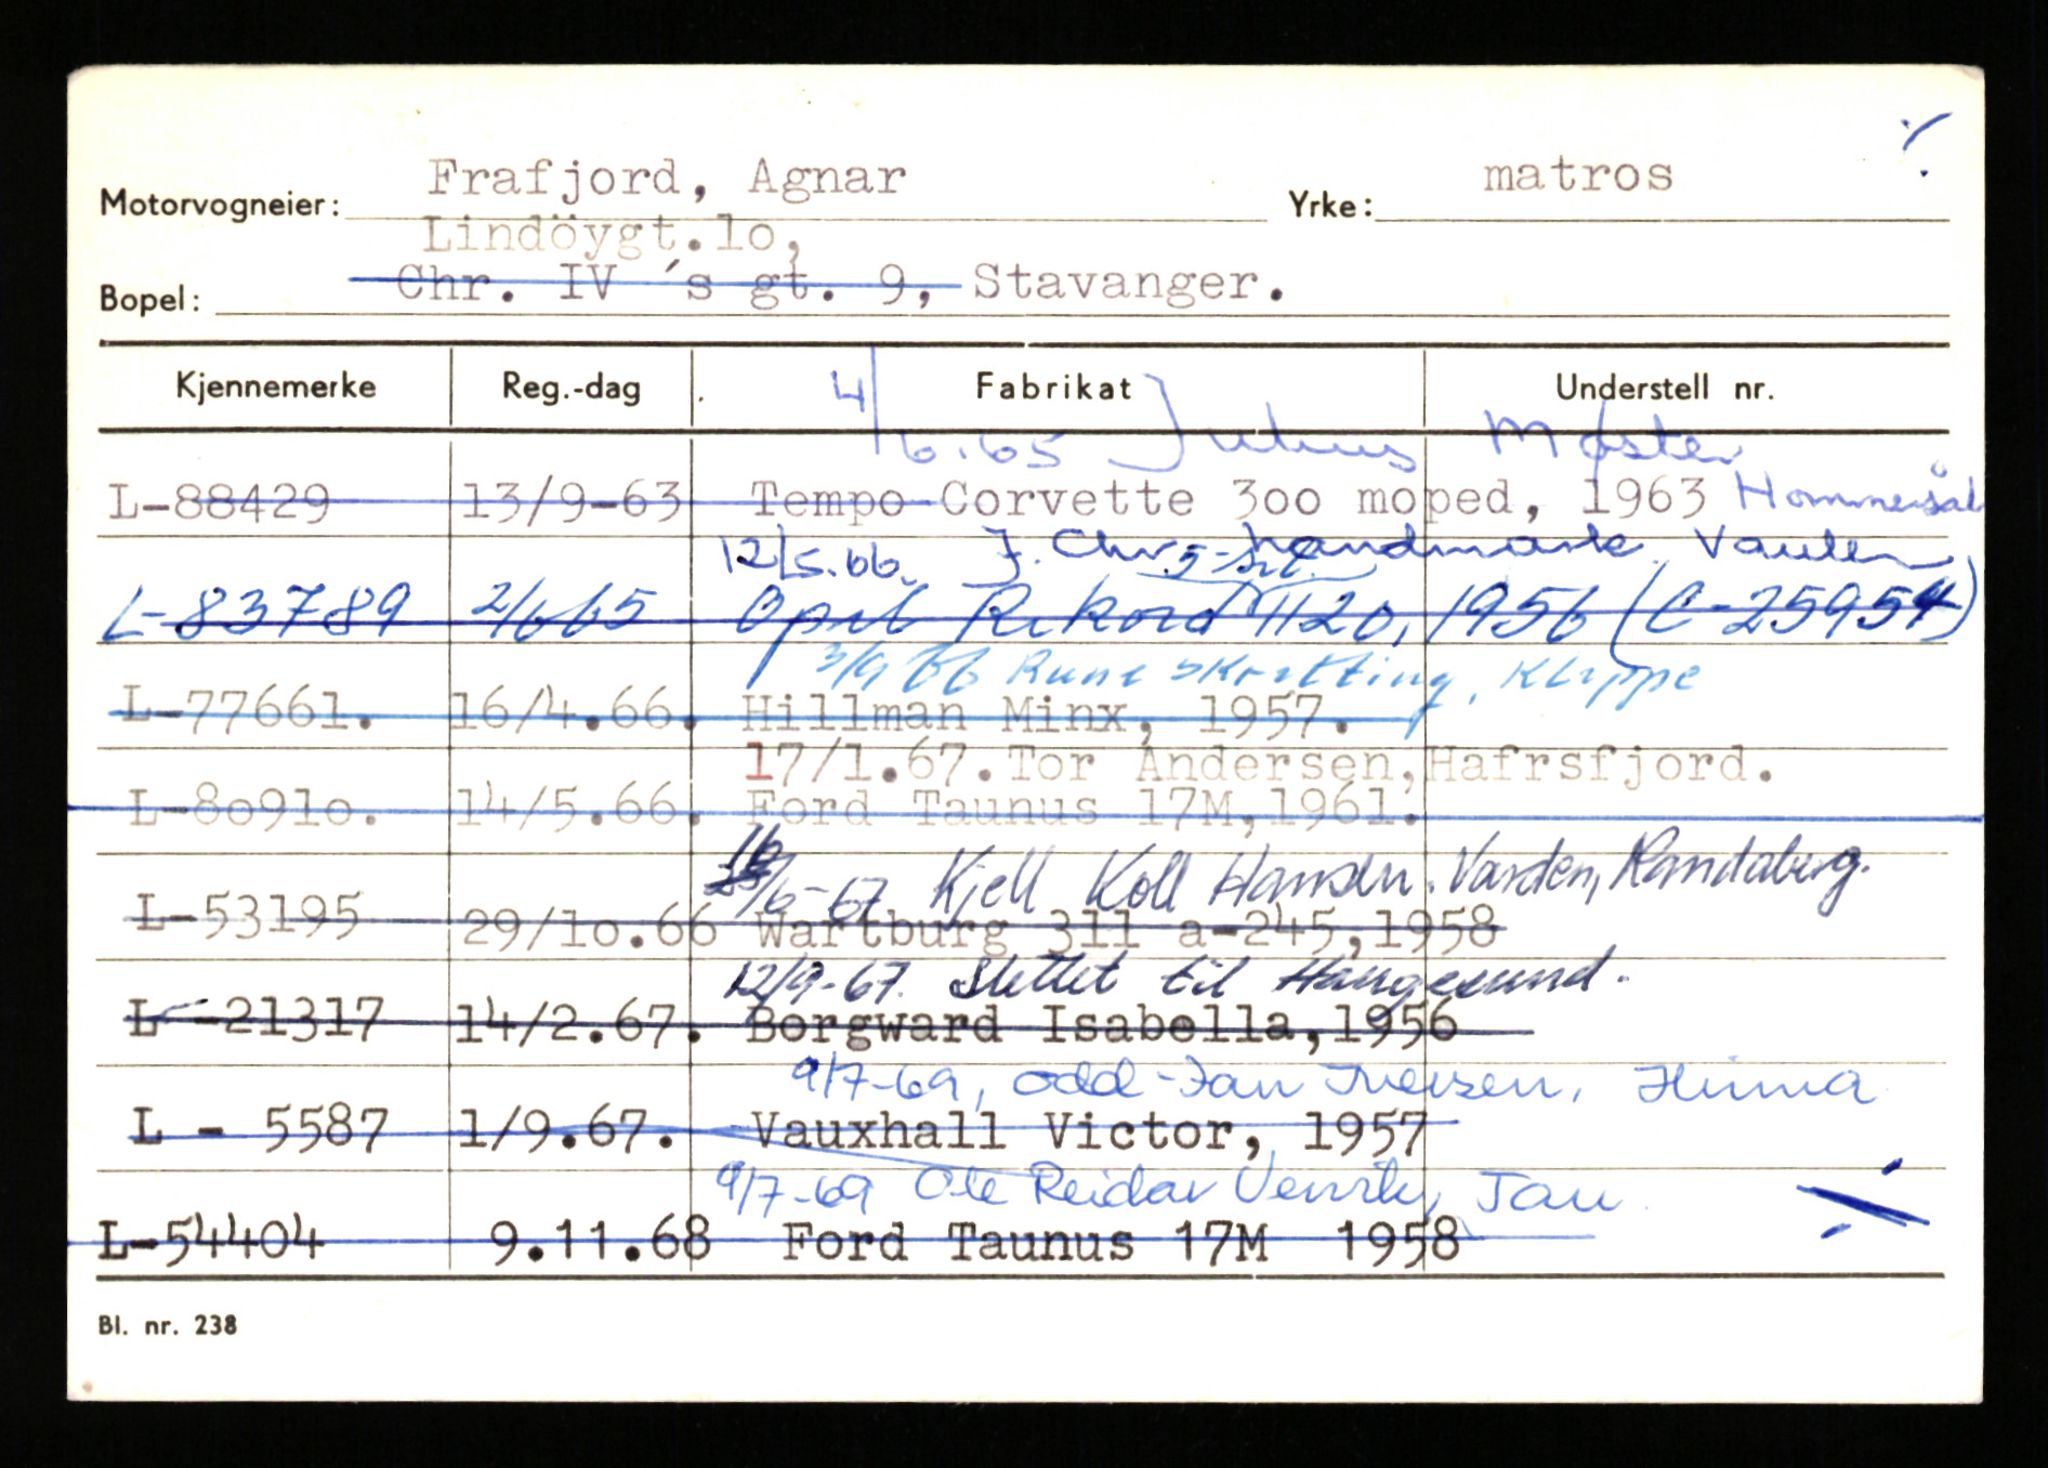 Motorvogneier: Frafjord, Agnar Yrke: matros
Lindöygt.lo,
Bopel: Chr. IV ´s gt. 9, Stavanger.
Kjennemerke Reg.-dag Fabrikat Understell nr.
4/6.65 Julius Møster
L-88429 13/9-63 Tempo Corvette 3oo moped, 1963 Hommersåk
12/5.66. J. Chr. Landmark Vaulen
5-set.
L-83789 2/6 65 Opel Rekord 1120, 1956 (C-25954)
3/9 66 Rune Skretting, Kleppe
L-77661. 16/4.66. Hillman Minx, 1957.
17/1.67. Tor Andersen, Hafrsfjord.
L-8o91o. 14/5.66. Ford Taunus 17M,1961.
16/6-67 Kjell Koll Hansen. Varden, Randaberg.
L-53195 29/1o.66 Wartburg 311 a-245,1958
12/9-67. Slettet til Haugesund.
L -21317 14/2.67. Borgward Isabella,1956
9/7-69, Odd-Jan Iversen, Hinna
L - 5587 1/9.67. Vauxhall Victor, 1957
9/7-69 Ole Reidar Tau
L-54404 9.11.68 Ford Taunus 17M 1958
Bl. nr. 238